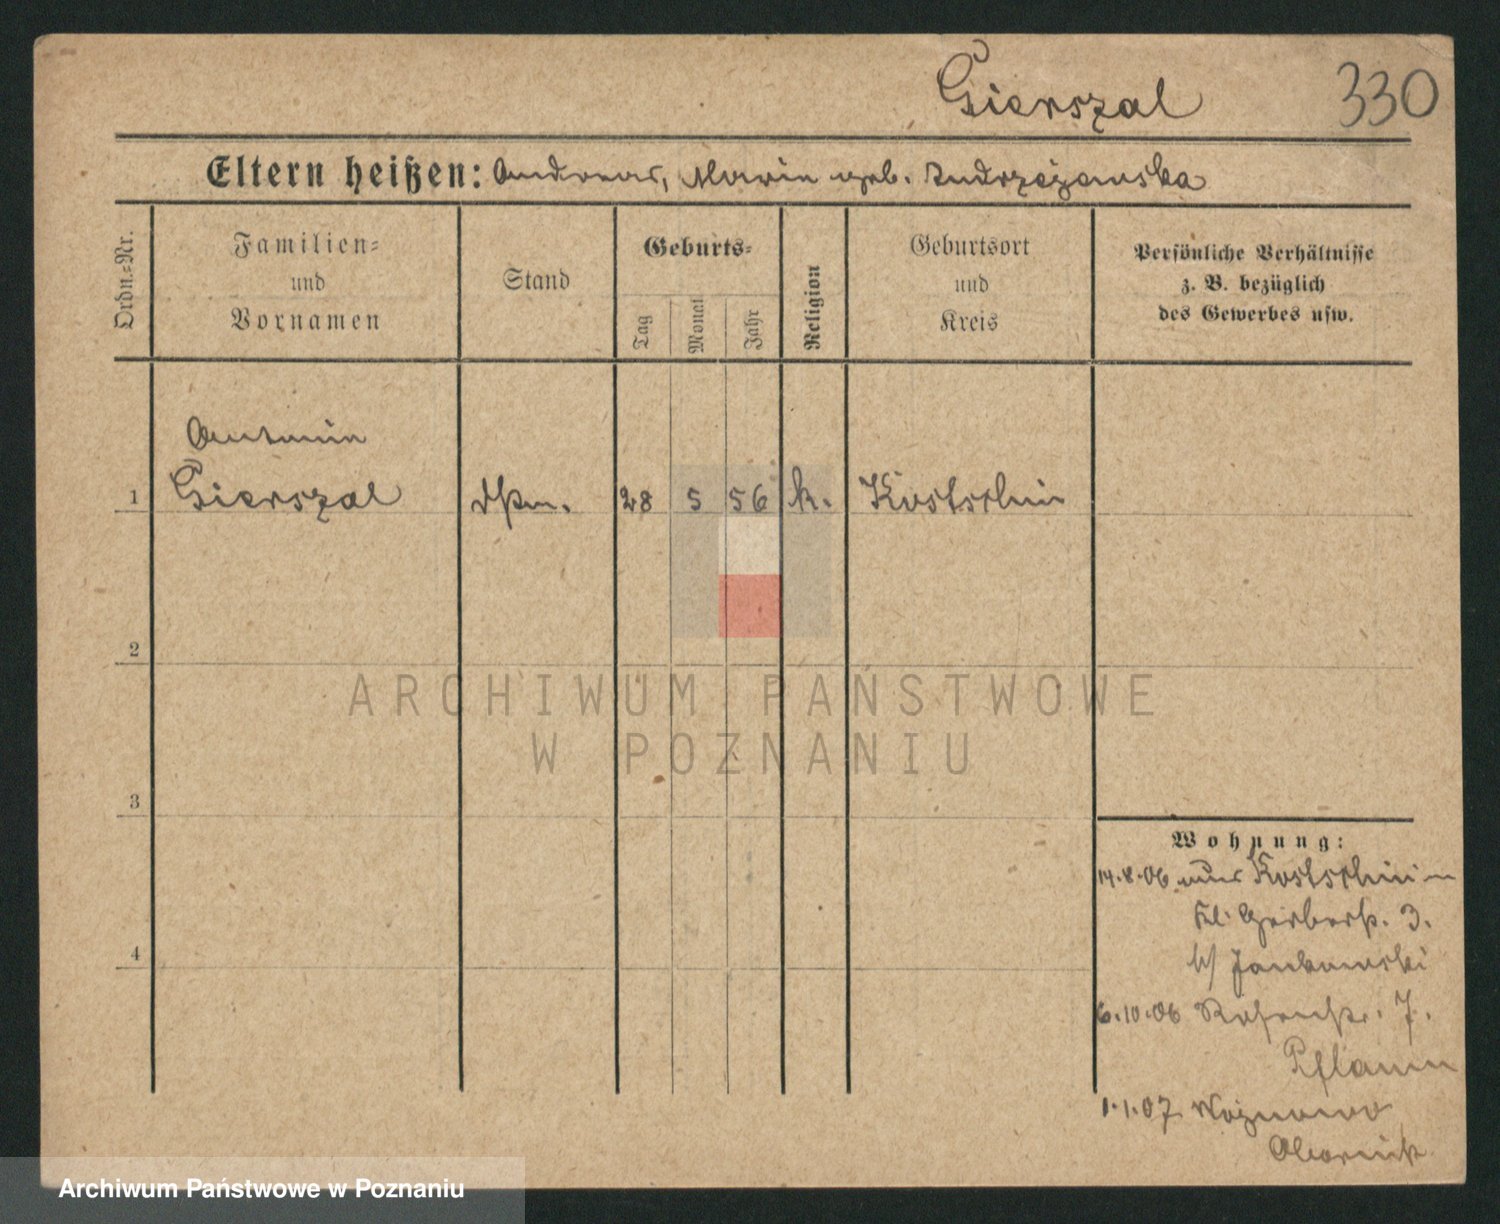 Gierszal 330
Eltern heißen: Andreas, Maria geb. Andrzejewska
Ordn.=Nr.
Familien=
und
Vornamen
Stand
Geburts=
Tag
Monat
Jahr
Religion
Geburtsort
und
Kreis
Persönliche Verhältnisse
z. B. bezüglich
des Gewerbes usw.
Antonin
1 Gierszal 28 5 56 k. Kostschin
2
ARCHIWUM PAŃSTWOWE
W POZNANIU
3
Wohnung:
14.8.06 aus Kostschin
Kl. Gerberstr. 3.
b/ Jankowski
4
6.10.06 Rosenstr. 7.
Pflaum
1.1.07 Woznowo
Obornik
Archiwum Państwowe w Poznaniu